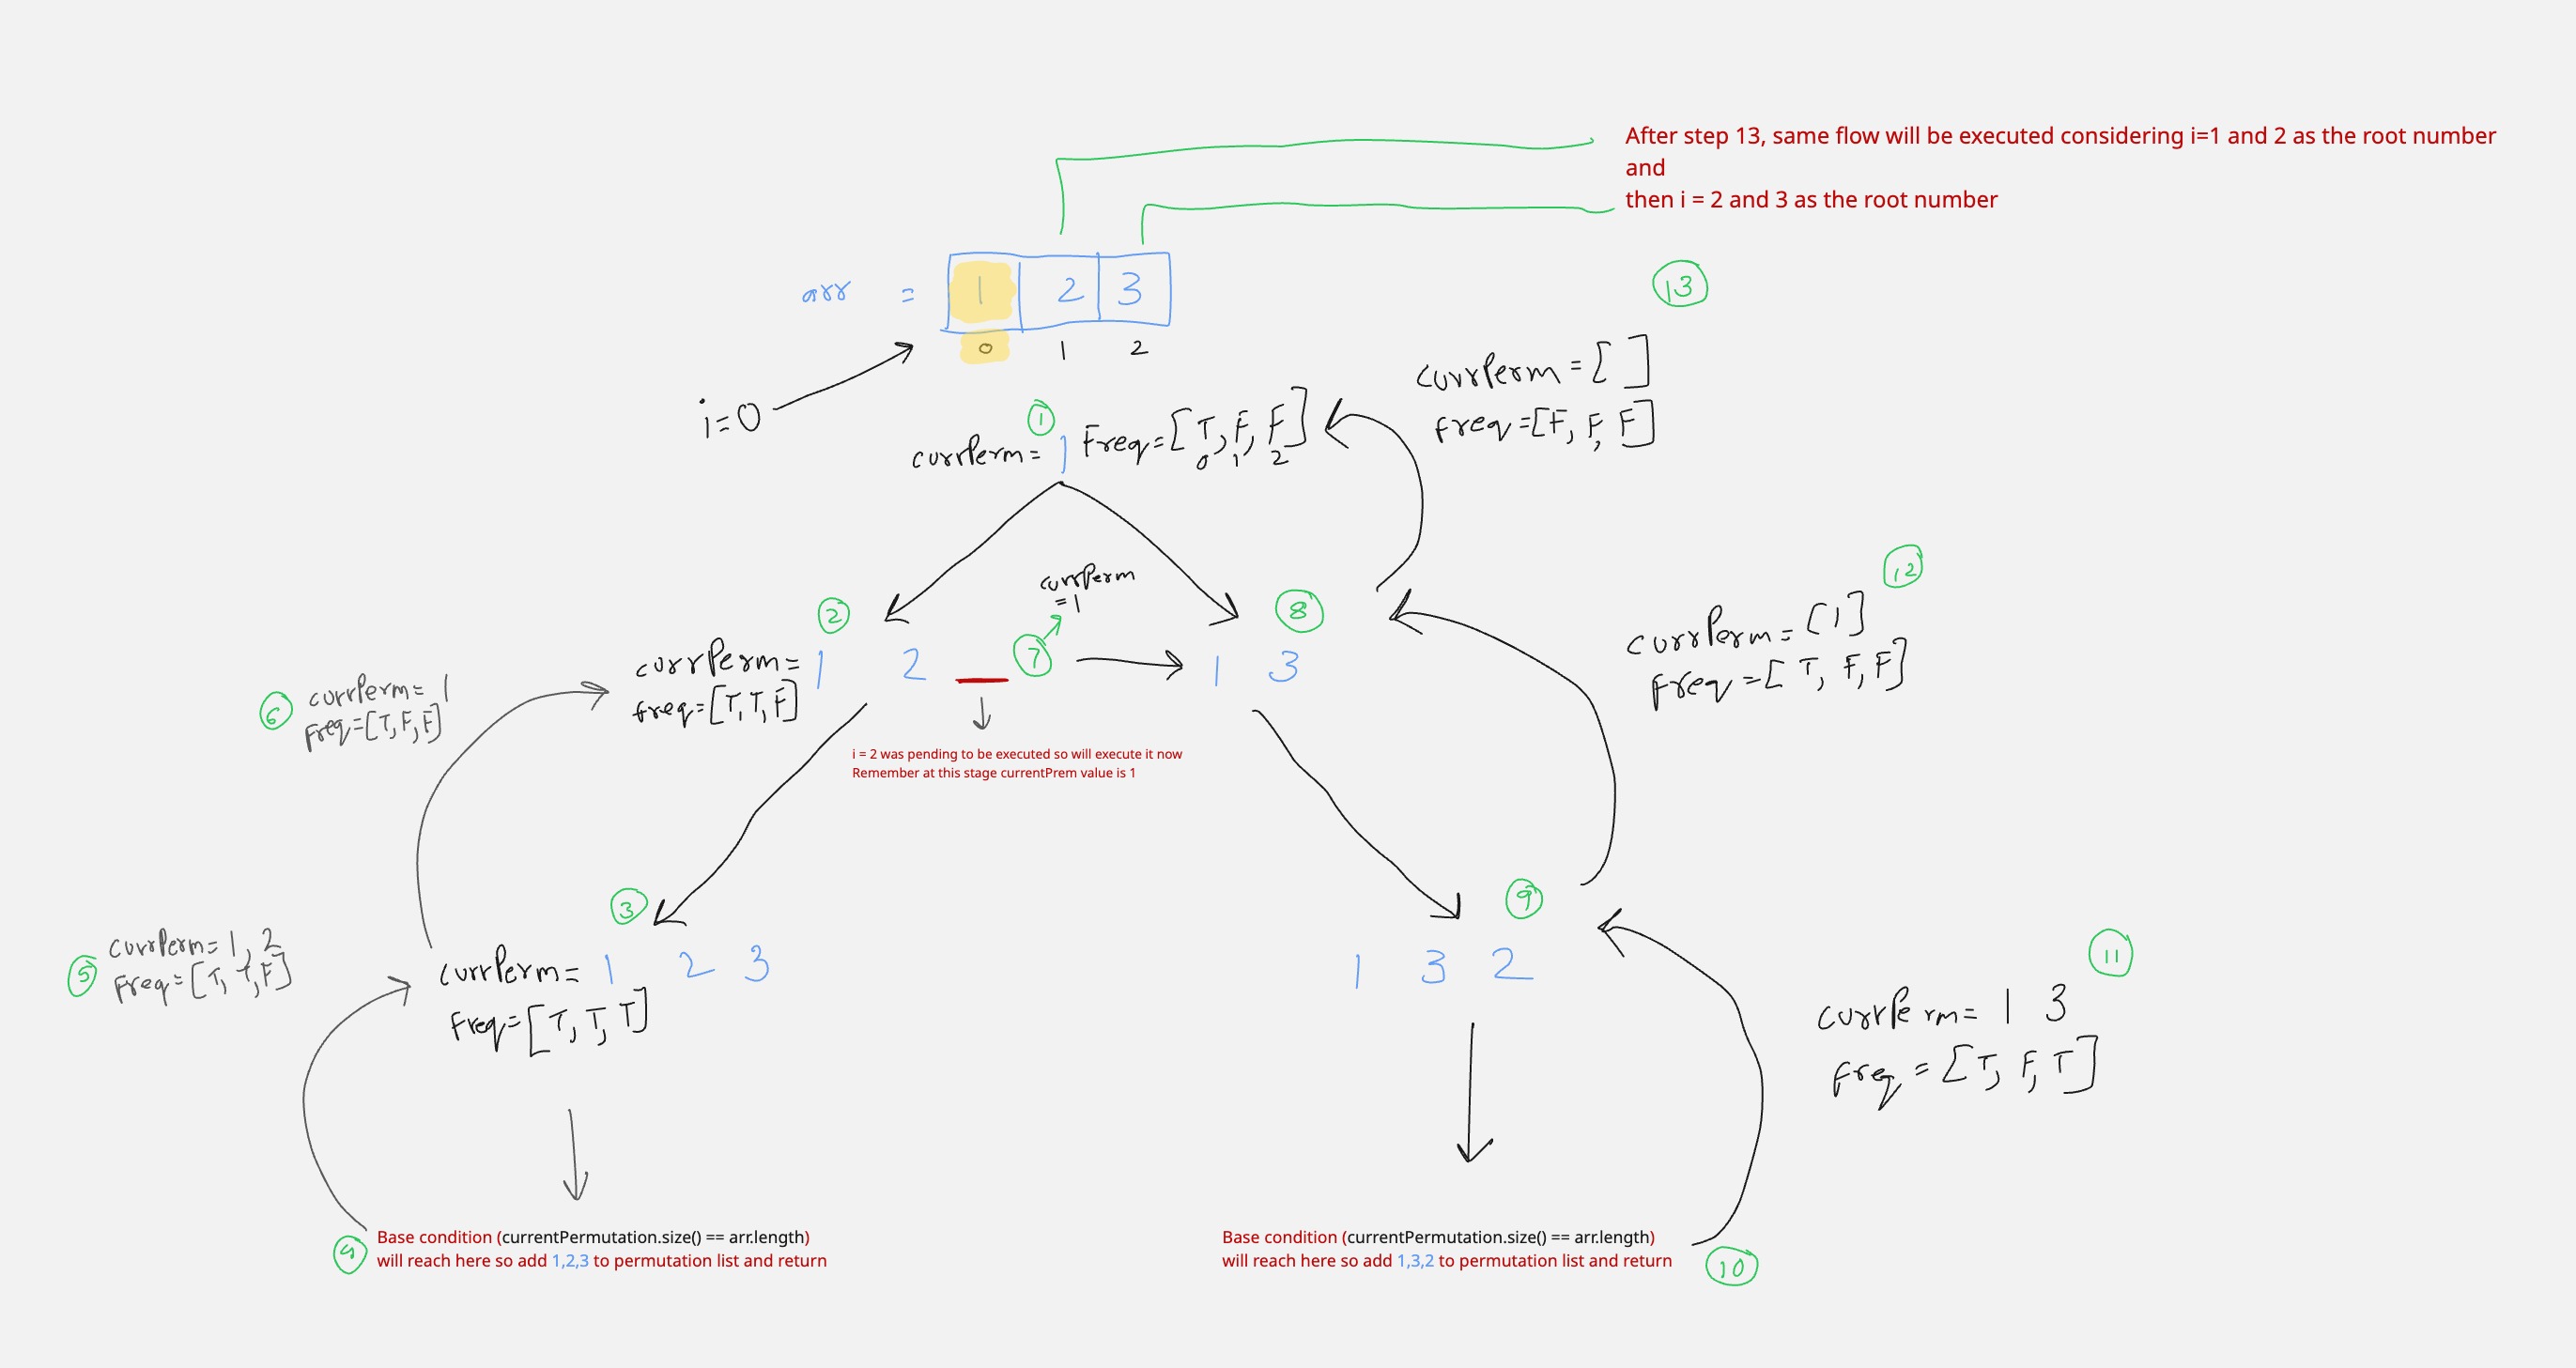 After step 13, same flow will be executed considering i=1 and 2 as the root number
and
then i = 2 and 3 as the root number
arr = 1 2 3
0 1 2
i=0
13
currPerm = [ ]
freq=[F, F, F]
1
currPerm= 1 Freq=[T, F, F]
0 1 2
2
currPerm= 1 2
freq=[T, T, F]
7
currPerm
=1
8
1 3
i = 2 was pending to be executed so will execute it now
Remember at this stage currentPrem value is 1
12
currPerm= [1]
Freq=[T, F, F]
6
currPerm= 1
Freq=[T, F, F]
3
currPerm= 1 2 3
Freq=[T, T, T]
5
currPerm= 1, 2
Freq=[T, T, F]
9
1 3 2
11
currPerm= 1 3
freq = [T, F, T]
4
Base condition (currentPermutation.size() == arr.length)
will reach here so add 1,2,3 to permutation list and return
Base condition (currentPermutation.size() == arr.length)
will reach here so add 1,3,2 to permutation list and return
10